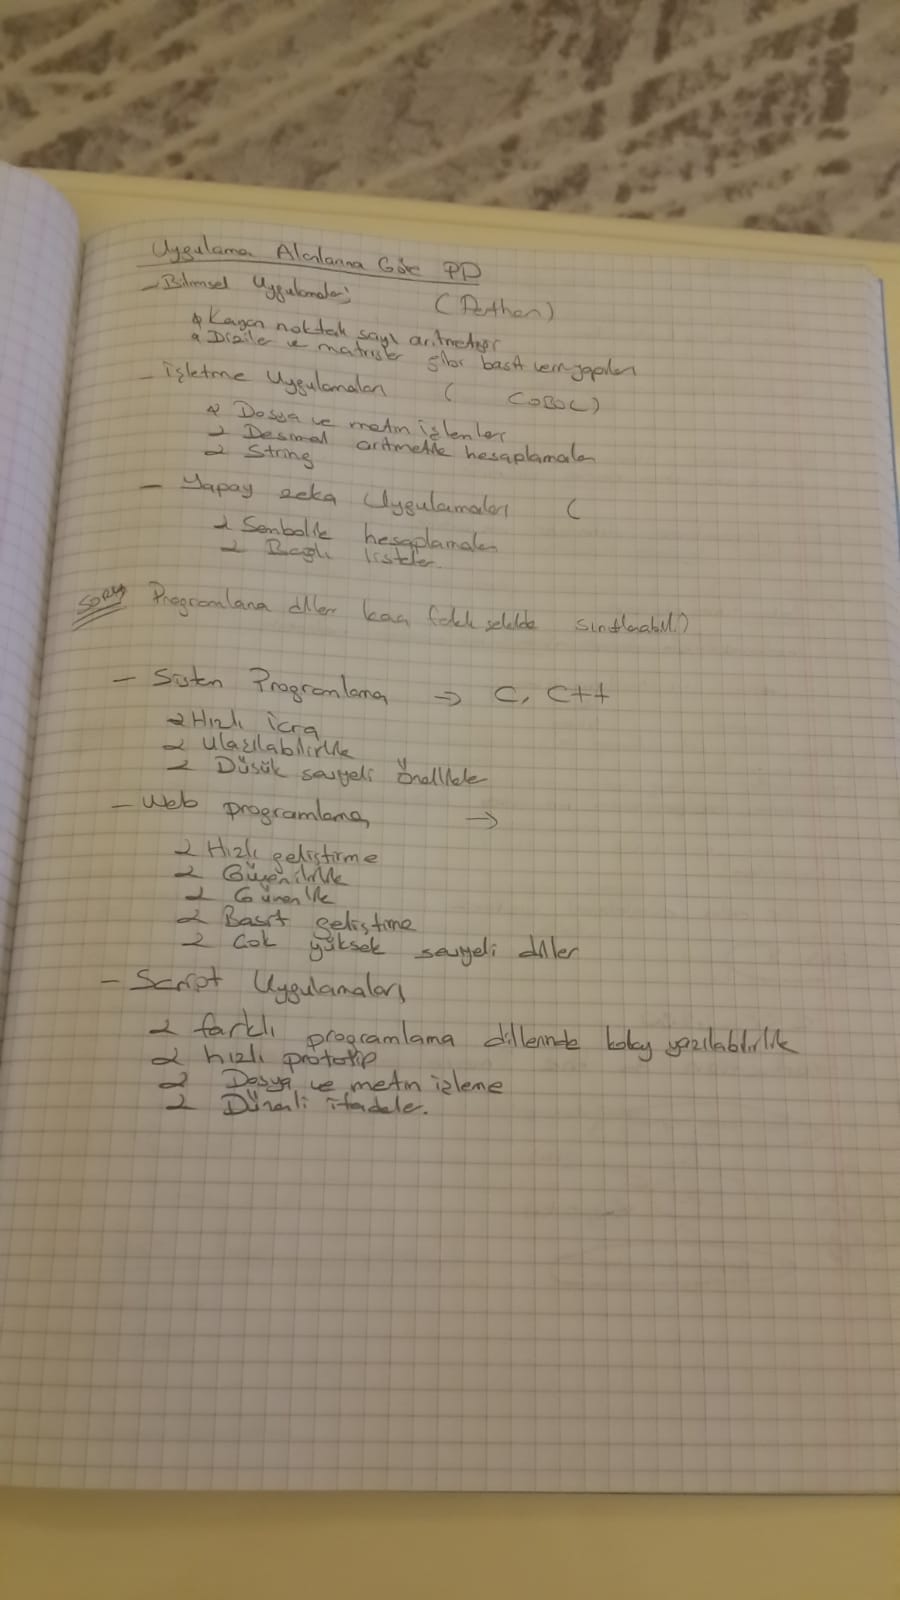 Uygulama Alanlarına Göre PD
- Bilimsel Uygulamalar; (Python)
* Kayan noktalı sayı aritmetiği
* Diziler ve matrisler gibi basit veri yapıları
- İşletme Uygulamaları ( COBOL)
* Dosya ve metin işlenler
* Desimal aritmetik hesaplamaları
* String
- Yapay zeka Uygulamaları (
* Sembolik hesaplamaları
* Bağlı listeler.
soru Programlana diller kaç farklı şekilde sınıflanabil.?
- Sistem Programlama → C, C++
* Hızlı icra
* Ulaşılabilirlik
* Düşük seviyeli önellikle
- Web programlama →
* Hızlı geliştirme
* Güvenilirlik
* Güvenlik
* Basit geliştime
* Çok yüksek seviyeli diller
- Script Uygulamaları
* farklı programlama dillerinde kolay yazılabilirlik
* hızlı prototip
* Dosya ve metin işleme
* Düzenli ifadeler.